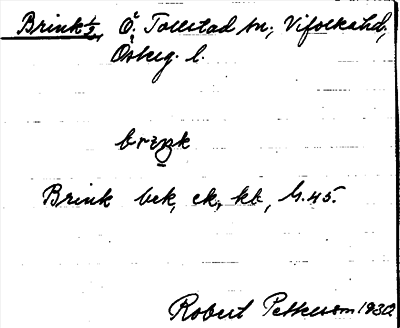 Brink ½, Ö. Tollstad sn; Vifolka hd;
Österg. l.
briŋk
Brink bek, ek, kb, G. 45.
Robert Petterson 1930